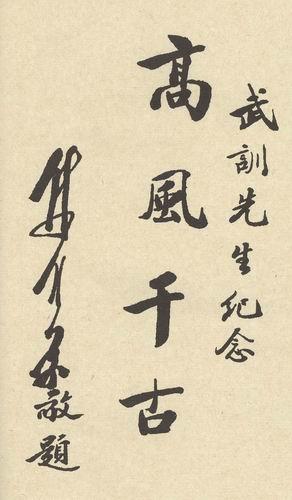 武訓先生紀念
高風千古
敬題